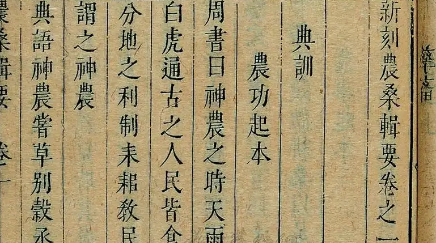 新刻農桑輯要卷之一
典訓
農功起本
周書曰神農之時天雨
白虎通古之人民皆食
分地之利制耒耜教民
謂之神農
典語神農嘗草别穀烝
農桑輯要 卷一